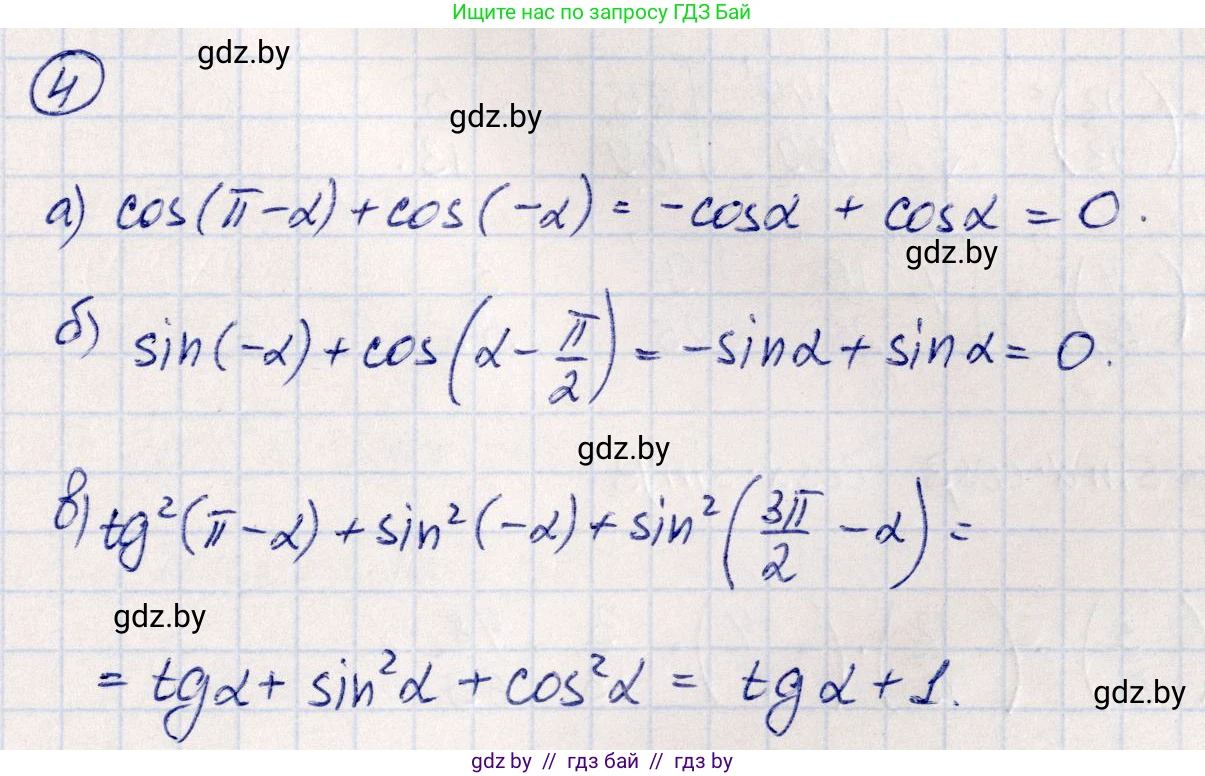 Ищите нас по запросу ГДЗ Бай
gdz.by
4
gdz.by
а) cos(π-α)+cos(-α) = -cosα + cosα = 0.
gdz.by
б) sin(-α)+cos(α-π/2) = -sinα+sinα = 0.
gdz.by
в) tg²(π-α)+sin²(-α)+sin²(3π/2-α) =
gdz.by
= tgα+ sin²α + cos²α = tgα+1.
gdz.by
gdz by // гдз бай // гдз by